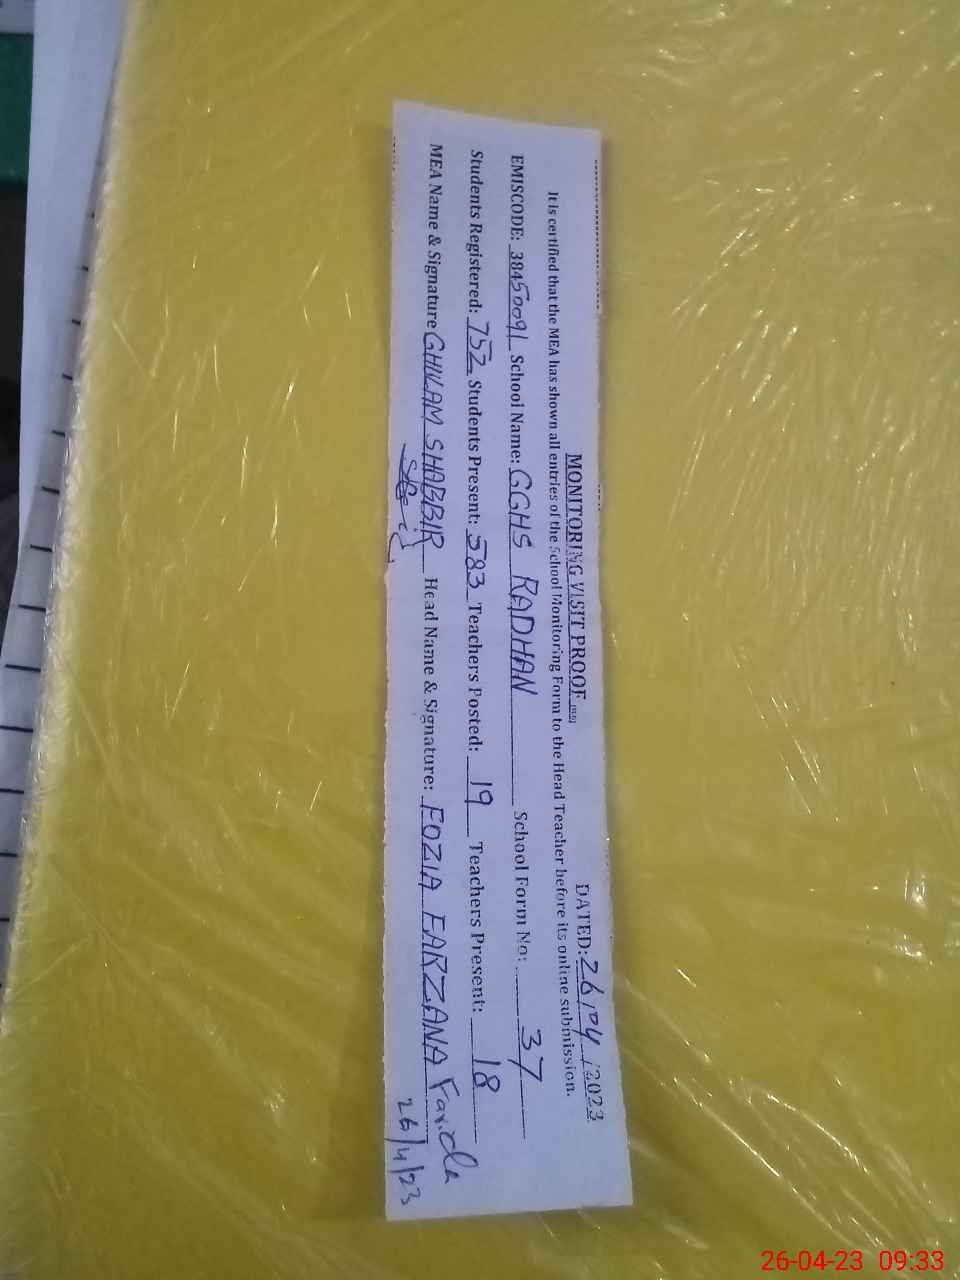 MONITORING VISIT PROOF
DATED: 26/04/2023
It is certified that the MEA has shown all entries of the School Monitoring Form to the Head Teacher before its online submission.
EMISCODE: 38450091 School Name: GGHS RADHAN School Form No: 37
Students Registered: 752 Students Present: 583 Teachers Posted: 19 Teachers Present: 18
MEA Name & Signature GHULAM SHABBIR Head Name & Signature: FOZIA FARZANA
26/4/23
26-04-23 09:33